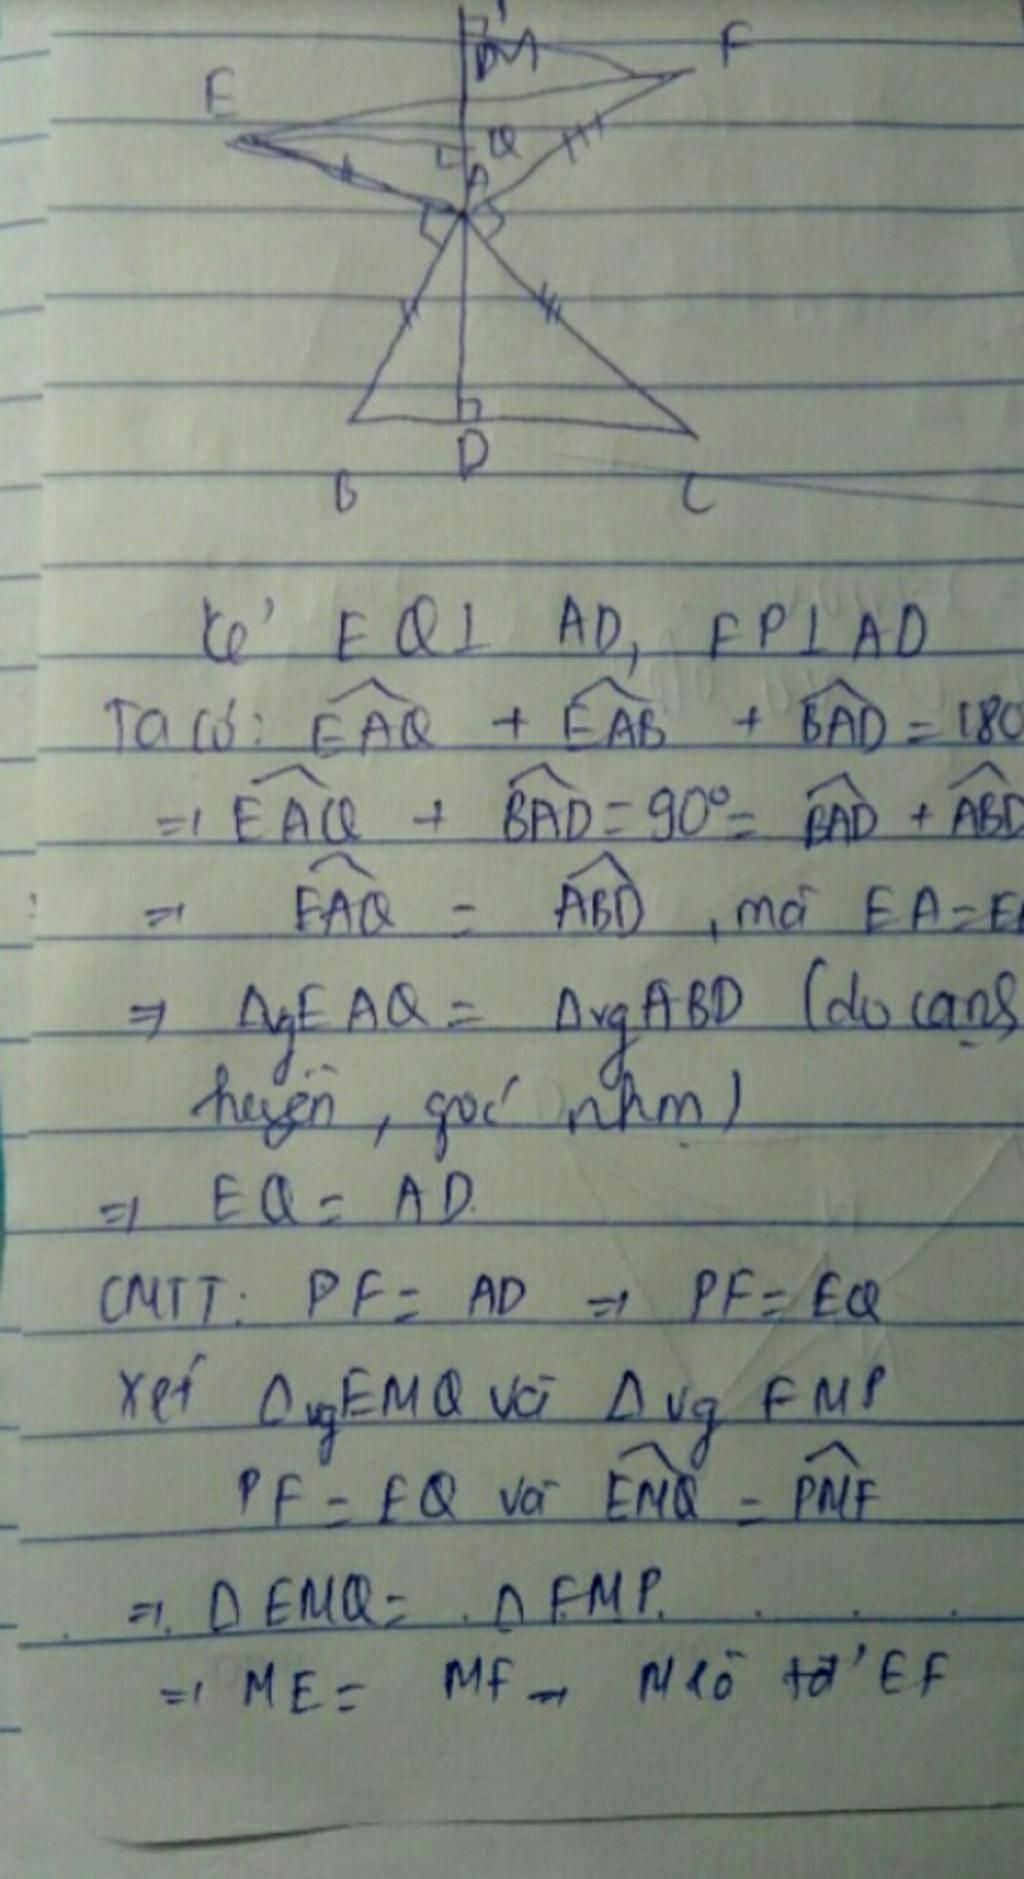 F
M
E
Q
A
D
B
C
kẻ EQ⊥ AD, FP⊥AD
Ta có: EAQ + EAB + BAD = 180
⇒ EAQ + BAD = 90° = BAD + ABD
⇒ EAQ = ABD, mà EA=
⇒ ΔvgEAQ = ΔvgABD (do cạnh
huyền, góc nhọn)
⇒ EQ = AD
CMTT: PF = AD ⇒ PF = EQ
Xét ΔvgEMQ và Δvg FMP
PF = EQ và EMQ = PMF
⇒ ΔEMQ = ΔFMP
⇒ ME = MF → M là tđ EF